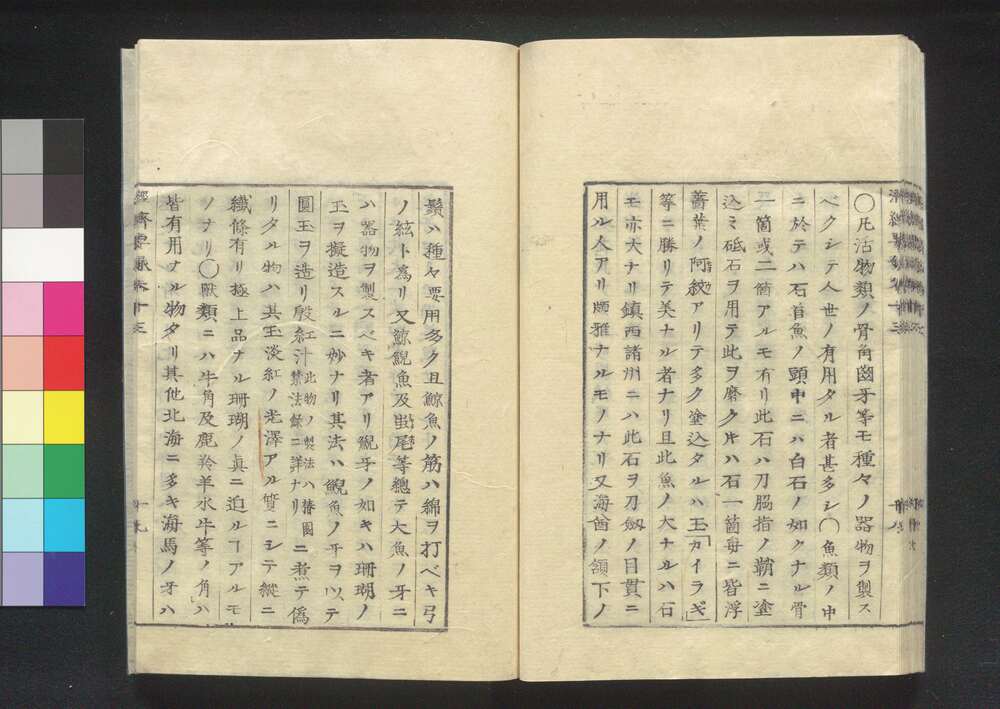 〇凡活物類ノ骨角齒牙等モ種々ノ器物ヲ製ス
ベクシテ人世ノ有用タル者甚多シ〇魚類ノ中
ニ於テハ石首魚ノ頭中ニハ白石ノ如クナル骨
一箇或二箇アルモ有リ此石ハ刀脇指ノ鞘ニ塗
込ミ砥石ヲ用テ此ヲ磨クトキハ石一箇毎ニ皆浮
薔葉ノ紋アリテ多ク塗込タルハ玉「カイラギ」
等ニ勝リテ美ナル者ナリ且此魚ノ大ナルハ石
モ亦大ナリ鎮西諸州ニハ此石ヲ刀劔ノ目貫ニ
用ル人アリ頗雅ナルモノナリ又海鷂ノ頷下ノ
鬚ハ種々要用多ク且鯨魚ノ筋ハ綿ヲ打ベキ弓
ノ絃ト為リ又鯨鯢魚及等總テ大魚ノ牙ニ
ハ器物ヲ製スベキ者アリ鯢牙ノ如キハ珊瑚ノ
玉ヲ擬造スルニ妙ナリ其法ハ鯢魚ノ牙ヲ以テ
圓玉ヲ造リ殷紅汁此物ノ製法ハ藩國禁法録ニ詳ナリニ煮テ偽
リタル物ハ其玉淡紅ノ光澤アル質ニシテ縱ニ
纎條有リ極上品ナル珊瑚ノ眞ニ迫ルヿアルモ
ノナリ〇獸類ニハ牛角及鹿羚羊水牛等ノ角ハ
皆有用ナル物タリ其他北海ニ多キ海馬ノ牙ハ
經濟要録卷十三
十九